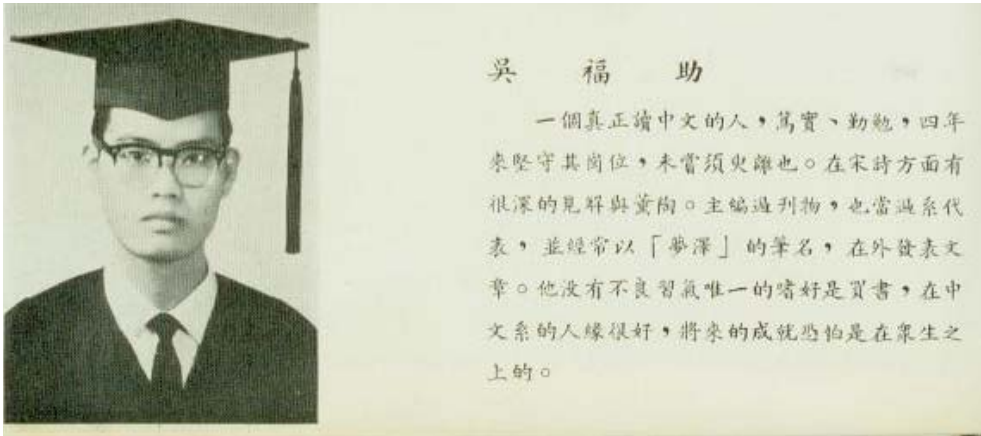 吳福助
一個真正讀中文的人，篤實、勤勉，四年
來堅守其崗位，未嘗須臾離也。在宋詩方面有
很深的見解與薰陶。主編過刊物，也當過系代
表，並經常以「夢澤」的筆名，在外發表文
章。他没有不良習氣唯一的嗜好是買書，在中
文系的人緣很好，將來的成就恐怕是在衆生之
上的。